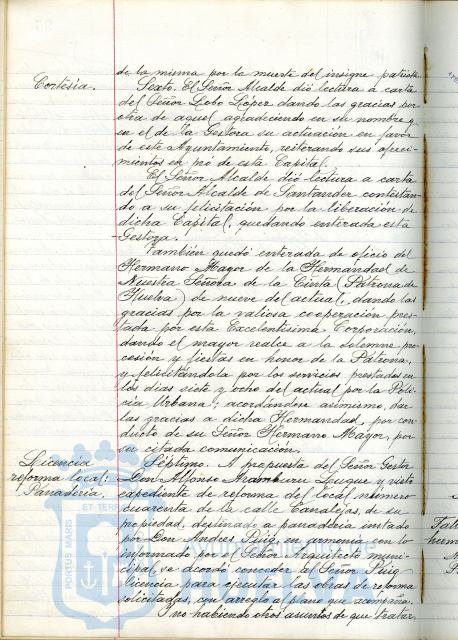 de la misma por la muerte del insigne patriota.
Cortesía.
Sexto. El Señor Alcalde dió lectura a carta
del Señor Lobo López dando las gracias por
otra de aquel agradeciendo en su nombre y
en el de la Gestora su actuación en favor
de este Ayuntamiento, reiterando sus ofreci-
mientos en pró de esta Capital.
El Señor Alcalde dió lectura a carta
del Señor Alcalde de Santander contestan-
do a su felicitación por la liberación de
dicha Capital, quedando enterada esta
Gestora.
También quedó enterada de oficio del
Hermano Mayor de la Hermandad de
Nuestra Señora de la Cinta (Patrona de
Huelva) de nueve del actual, dando las
gracias por la valiosa cooperación pres-
tada por esta Excelentísima Corporación,
dando el mayor realce a la solemne pro-
cesión y fiestas en honor de la Patrona,
y felicitándola por los servicios prestados en
los días siete y ocho del actual por la Poli-
cía Urbana; acordándose asimismo, dar
las gracias a dicha Hermandad, por con-
ducto de su Señor Hermano Mayor, por
su citada comunicación.
Licencia
reforma local:
Panadería.
Séptimo. A propuesta del Señor Gestor
Don Alfonso Aramburu Luque y visto
expediente de reforma del local número
cuarenta de la calle Canalejas, de su
propiedad, destinado a panadería instado
por Don Andres Puig, en armonía con lo
informado por el Señor Arquitecto muni-
cipal, se acordó conceder al Señor Puig
licencia para ejecutar las obras de reforma
solicitadas, con arreglo al plano que acompaña.
Y no habiendo otros asuntos de que tratar
PORTUS MARIS
ET TERR